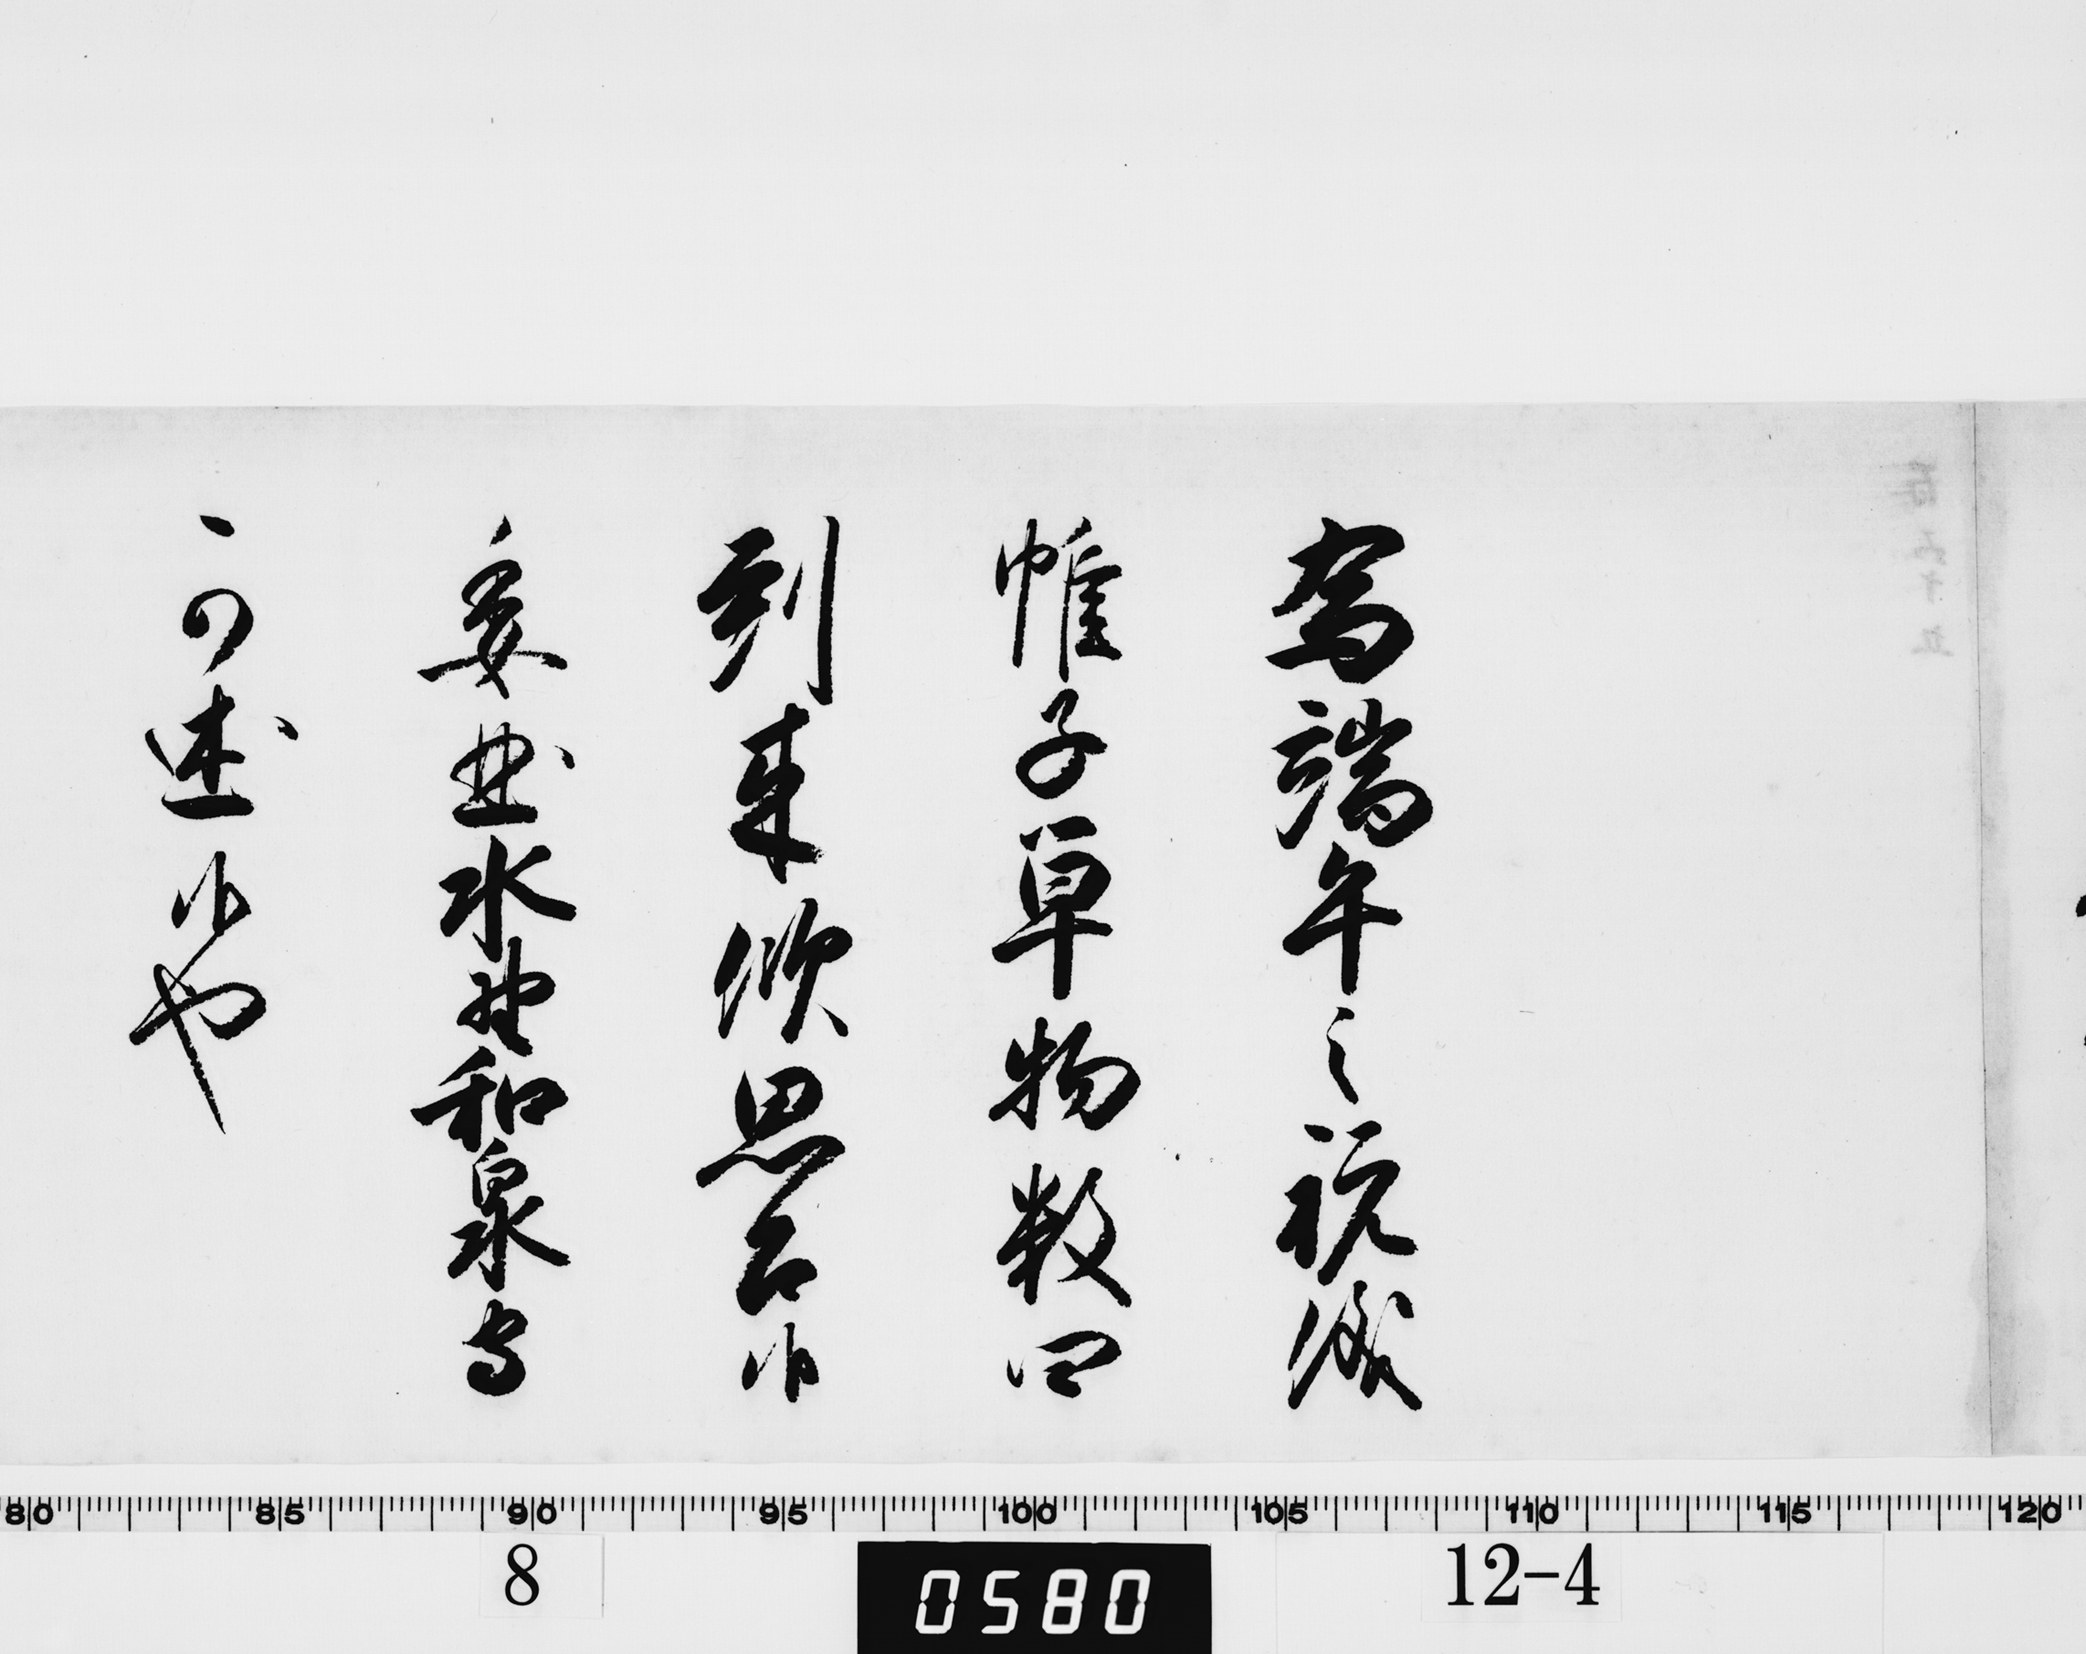 為端午之祝儀
帷子単物数四
到来歓思召候
委曲水野和泉守
可述候也
80 85 90 95 100 105 110 115 120
8 0580 12-4